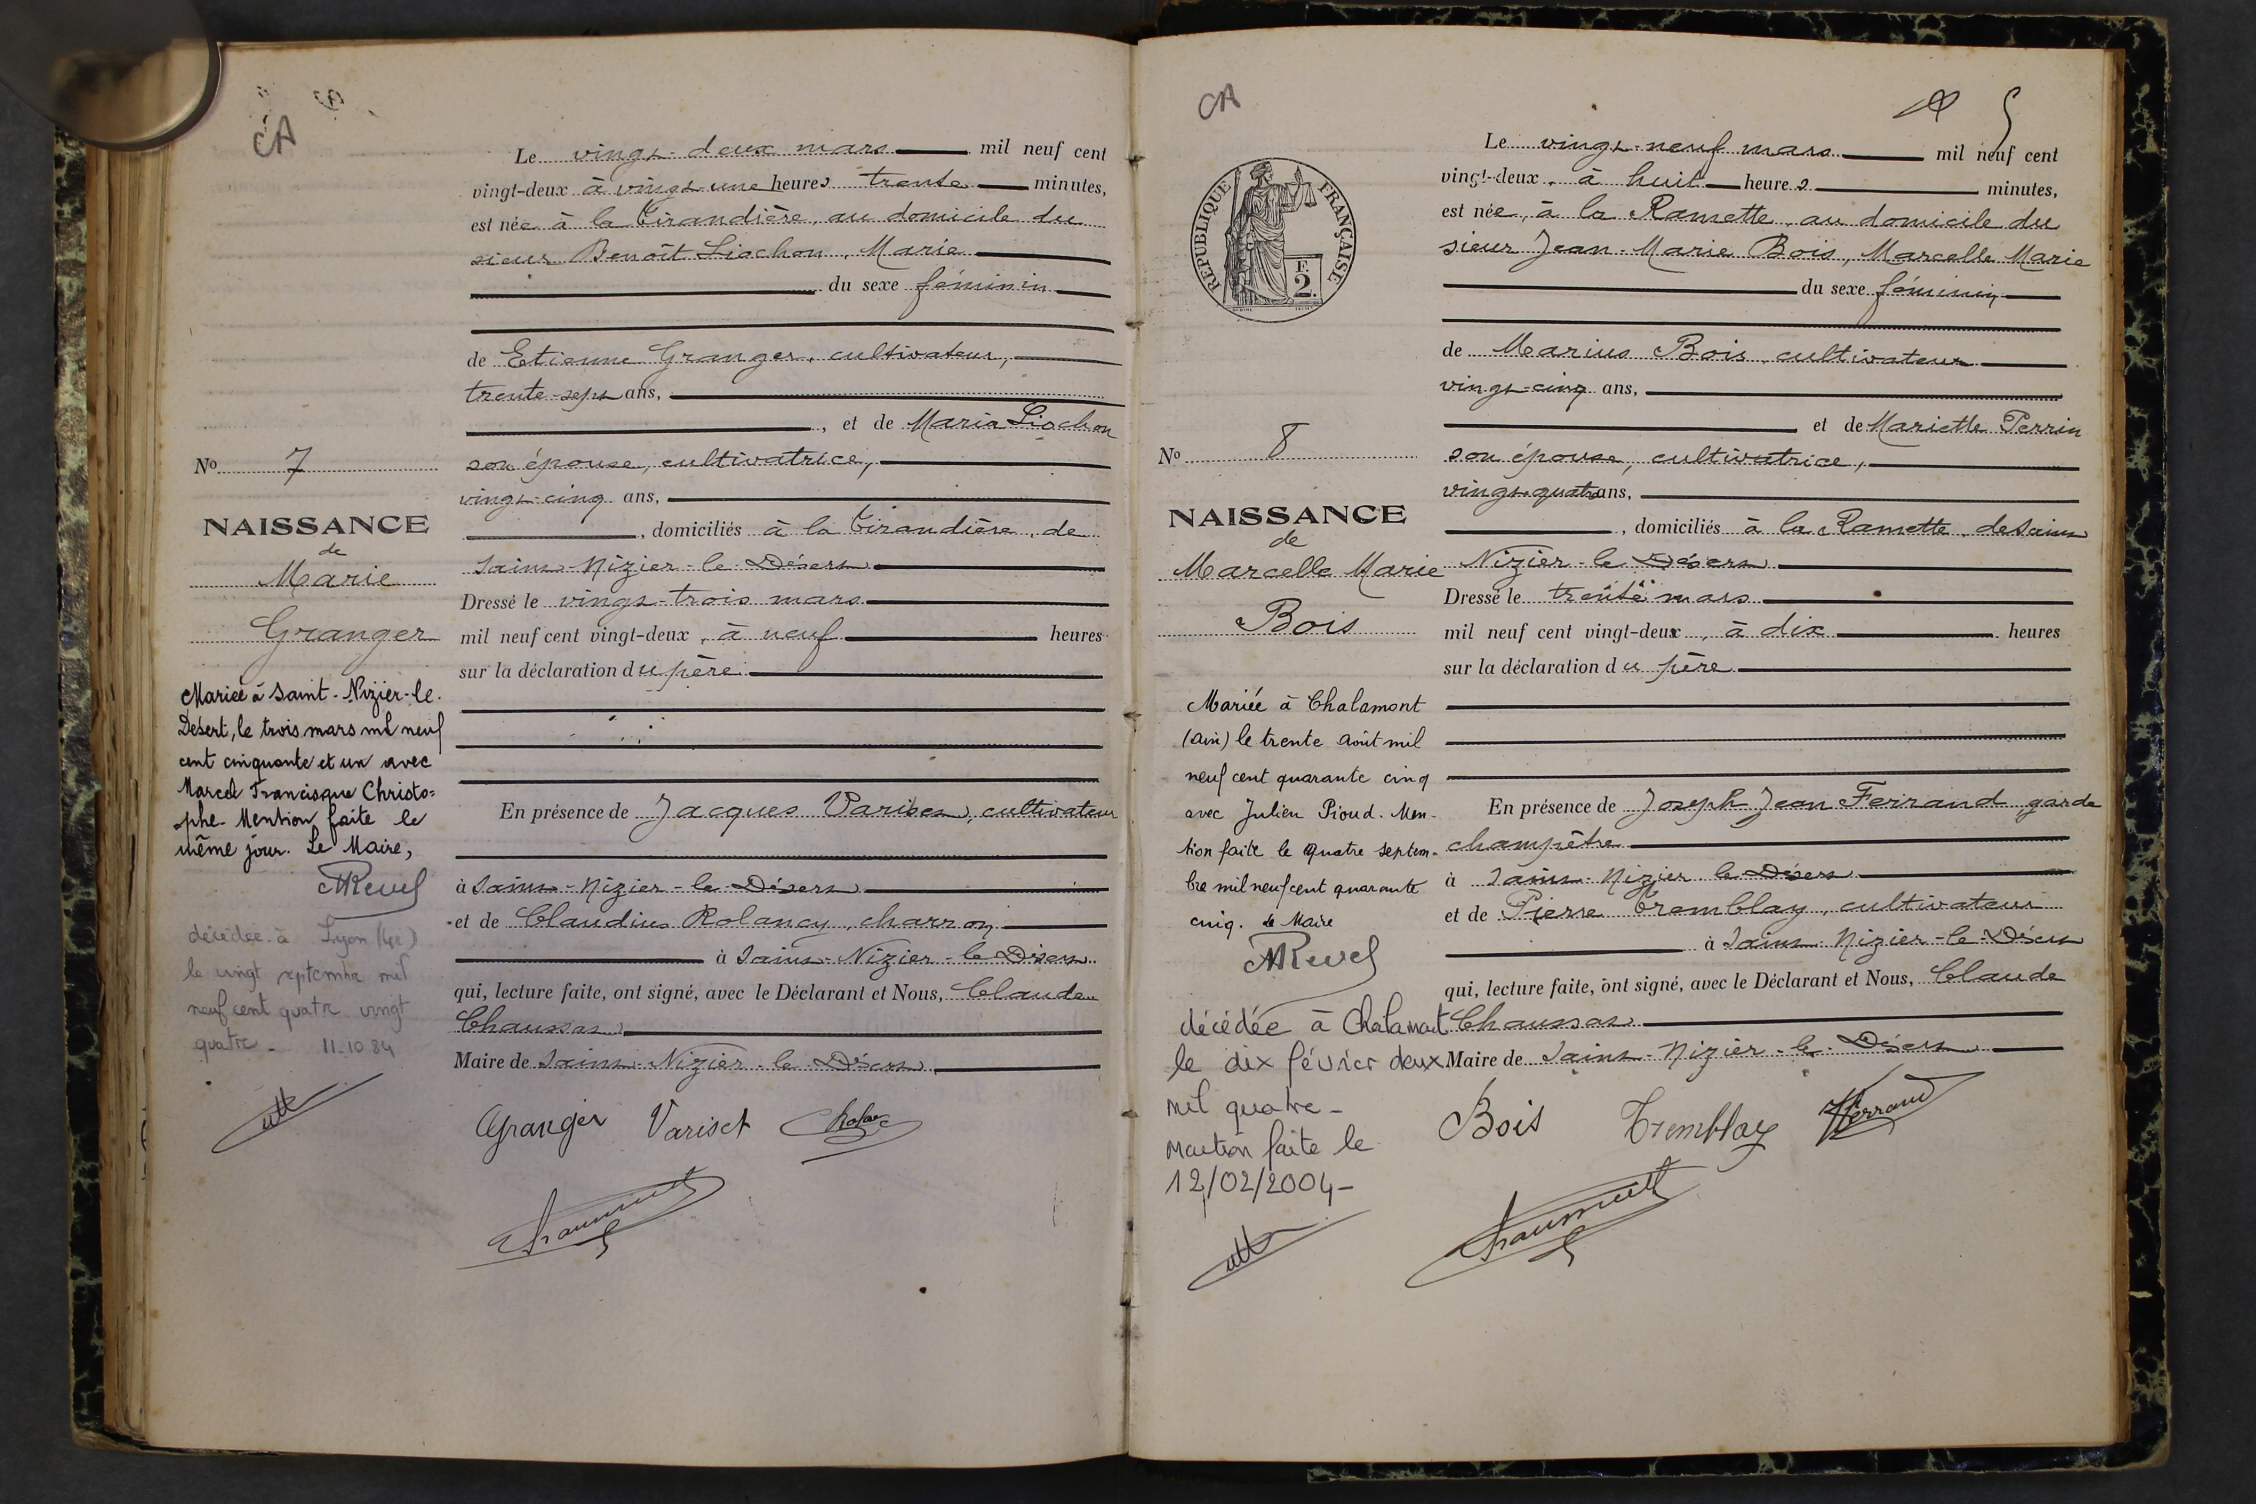 CA
Le vingt-deux mars mil neuf cent
vingt-deux à vingt une heures trente minutes,
est née à la Tirandière, au domicile du
sieur Benoît Liochon, Marie
du sexe féminin
de Etienne Granger, cultivateur,
trente-sept ans,
, et de Maria Liochon
son épouse, cultivatrice,
vingt-cinq ans,
, domiciliés à la Tirandière, de
Saint-Nizier-le-Désert
Dressé le vingt-trois mars
mil neuf cent vingt-deux, à neuf heures
sur la déclaration du père
En présence de Jacques Variset, cultivateur
à Saint-Nizier-le-Désert
et de Claudius Rolancy, charron
à Saint-Nizier-le-Désert
qui, lecture faite, ont signé, avec le Déclarant et Nous, Claude
Chaussat
Maire de Saint-Nizier-le-Désert
Granger Variset
No 7
NAISSANCE
de
Marie
Granger
Mariée à Saint-Nizier-le-
Désert, le trois mars mil neuf
cent cinquante et un avec
Marcel Francisque Christo=
phe. Mention faite le
même jour. Le Maire,
MRevel
décédée à Lyon (4e)
le vingt septembre mil
neuf cent quatre vingt
quatre - 11-10 84
CA
5
RÉPUBLIQUE FRANÇAISE
F.
2.
Le vingt-neuf mars mil neuf cent
vingt-deux, à huit heures minutes,
est née, à la Ramette, au domicile du
sieur Jean-Marie Bois, Marcelle Marie
du sexe féminin
de Marius Bois, cultivateur
vingt-cinq ans,
et de Mariette Perrin
son épouse, cultivatrice,
vingt-quatre ans,
, domiciliés à la Ramette, de Saint
Nizier-le-Désert
Dressé le trente mars
mil neuf cent vingt-deux, à dix heures
sur la déclaration du père
En présence de Joseph Jean Ferrand, garde
champêtre
à Saint-Nizier-le-Désert
et de Pierre Tremblay, cultivateur
à Saint-Nizier-le-Désert
qui, lecture faite, ont signé, avec le Déclarant et Nous, Claude
Chaussat
Maire de Saint-Nizier-le-Désert
Bois Tremblay Ferrand
No 8
NAISSANCE
de
Marcelle Marie
Bois
Mariée à Chalamont
(Ain) le trente août mil
neuf cent quarante cinq
avec Julien Pioud. Men-
tion faite le quatre septem-
bre mil neuf cent quarante
cinq. Le Maire
MRevel
décédée à Chalamont
le dix février deux
mil quatre -
Mention faite le
12/02/2004 -